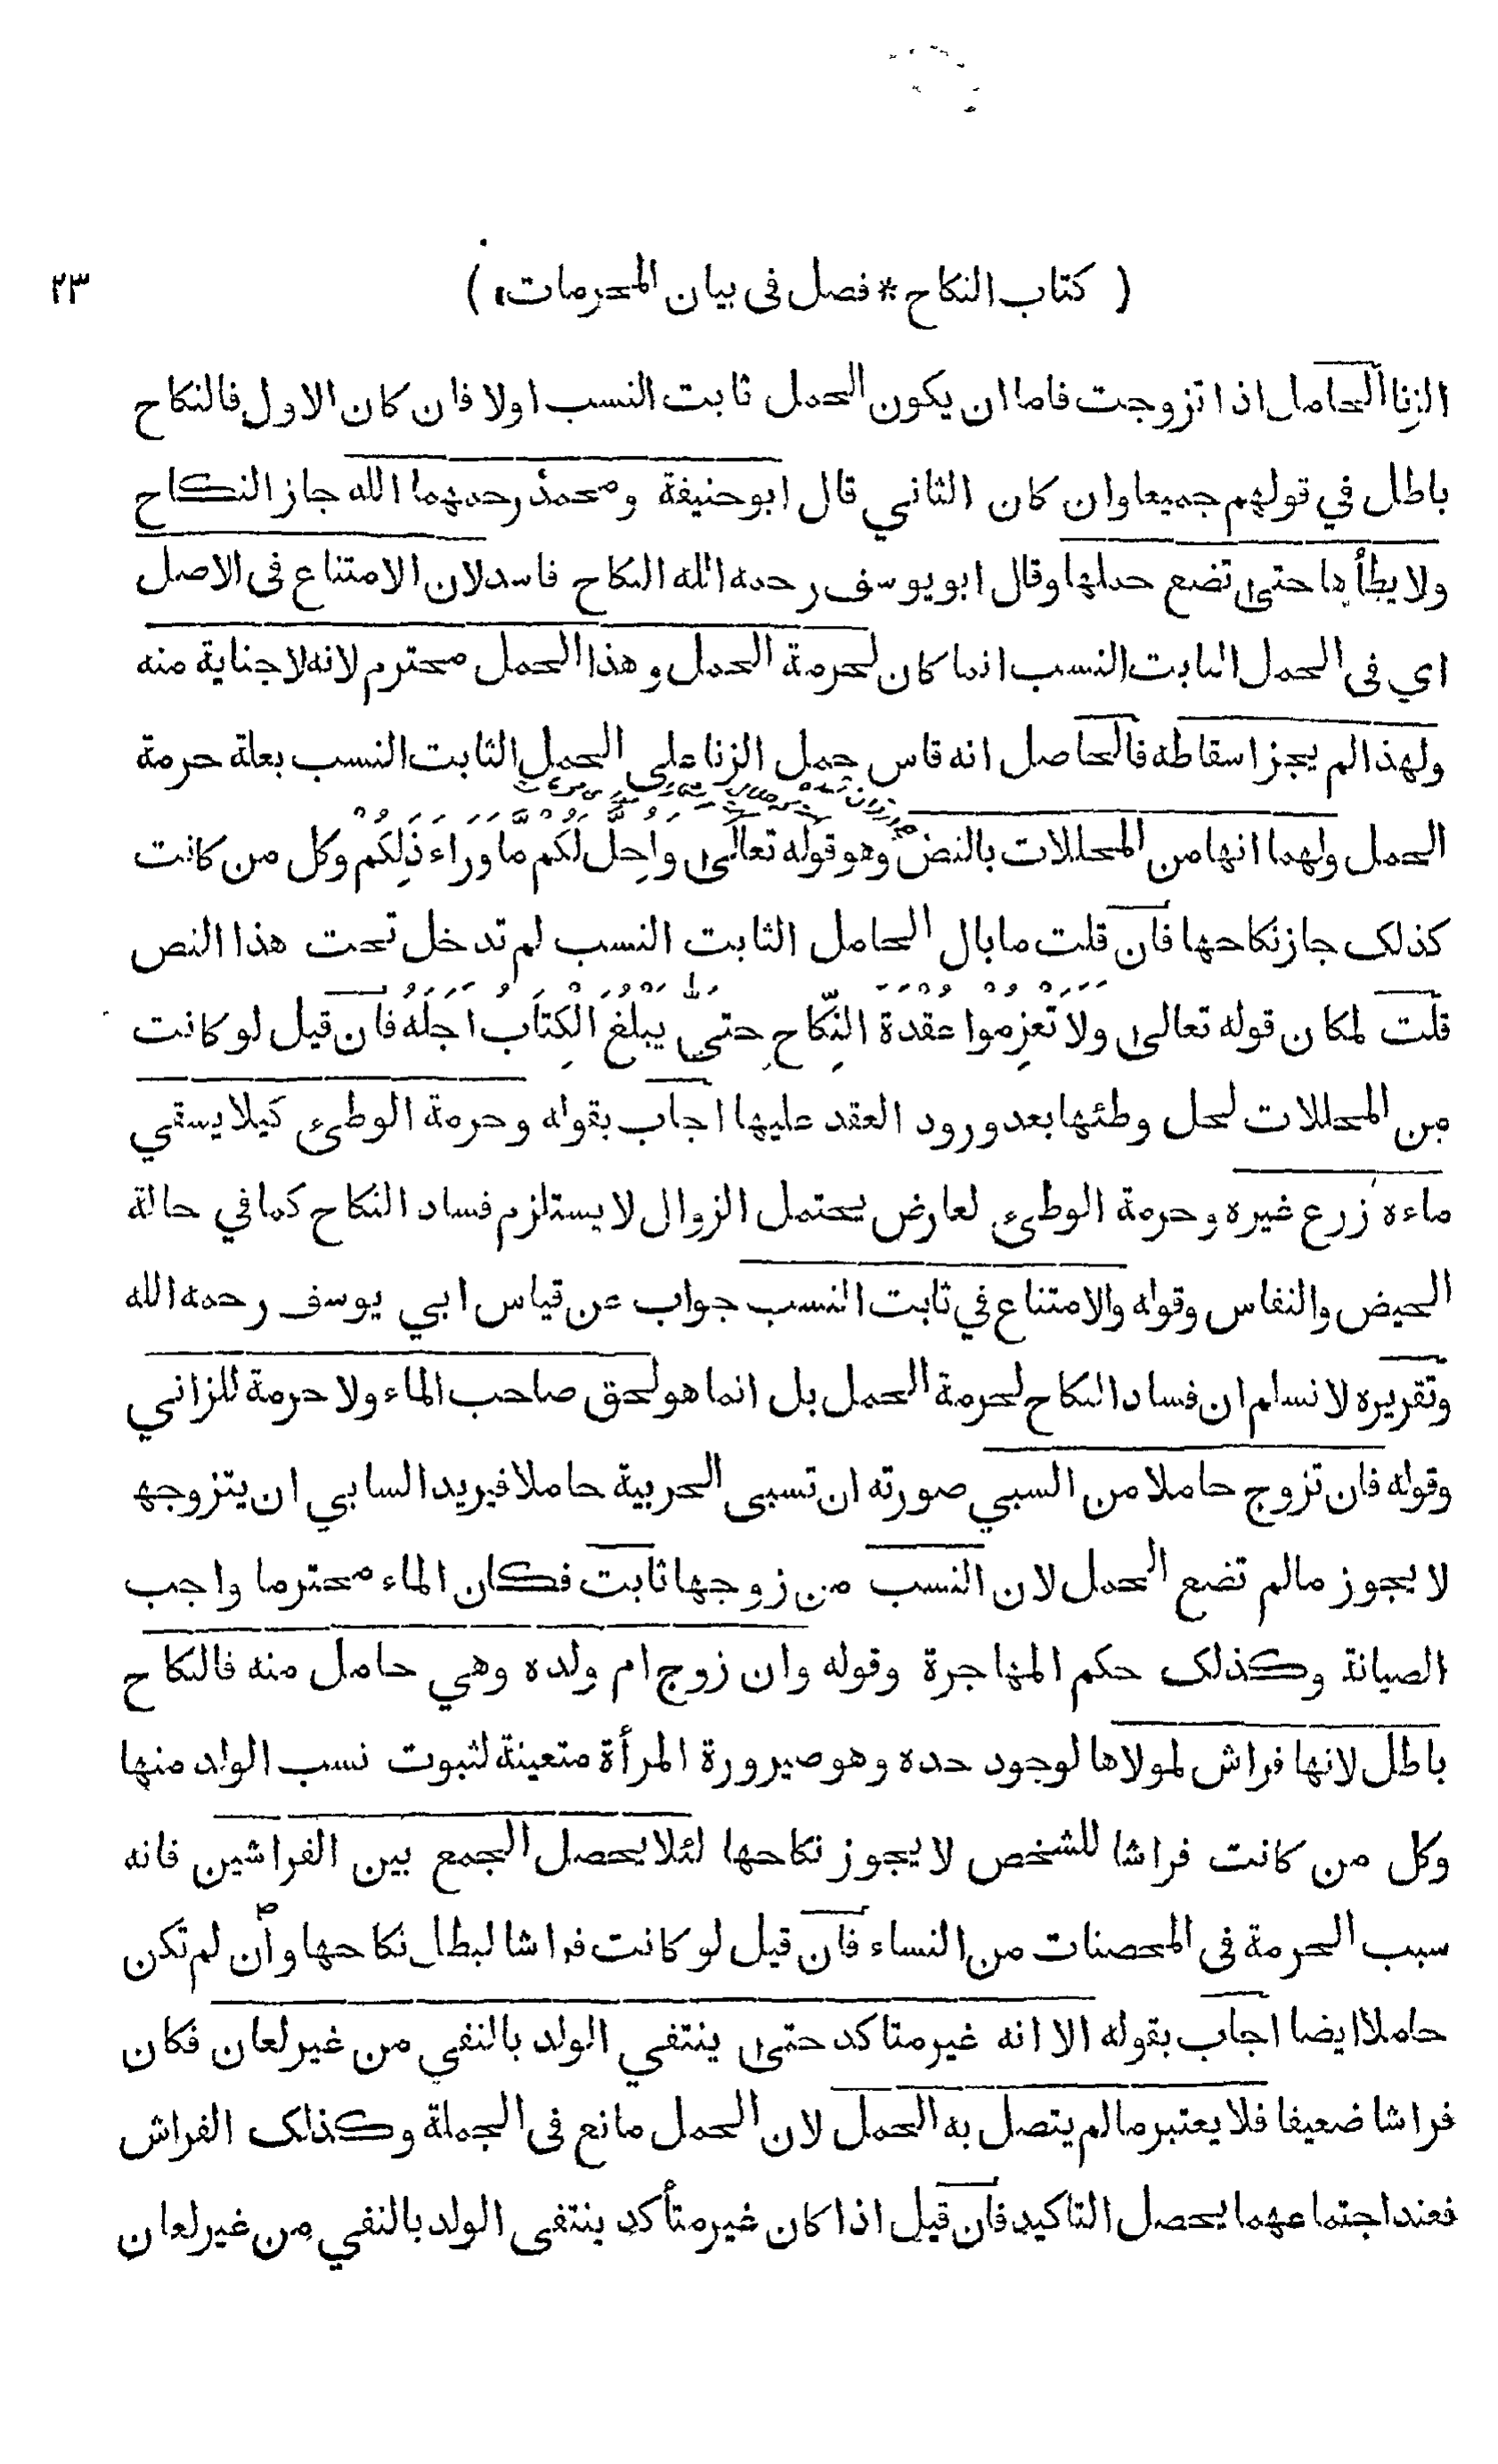 ( كتاب النكاح * فصل في بيان المحرمات )
٢٣
الزنا الحامل اذا تزوجت فاما ان يكون الحمل ثابت النسب اولا فان كان الاول فالنكاح
باطل في قولهم جميعا وان كان الثاني قال ابو حنيفة ومحمد رحمهما الله جاز النكاح
ولا يطأها حتى تضع حملها وقال ابو يوسف رحمه الله النكاح فاسد لان الامتناع في الاصل
اي في الحمل الثابت النسب انما كان لحرمة الحمل وهذا الحمل محترم لانه لا جناية منه
ولهذا لم يجز اسقاطه فالحاصل انه قاس حمل الزنا على الحمل الثابت النسب بعلة حرمة
الحمل ولهما انها من المحللات بالنص وهو قوله تعالى وَاُحِلَّ لَكُم ما وَراءَ ذٰلِكُم وكل من كانت
كذلك جاز نكاحها فان قلت ما بال الحامل الثابت النسب لم تدخل تحت هذا النص
قلت لمكان قوله تعالى ولا تَعزِموا عقدة النِّكاحِ حتى يبلغَ الكِتاب اجله فان قيل لو كانت
من المحللات لحل وطئها بعد ورود العقد عليها اجاب بقوله وحرمة الوطئ كيلا يسقي
ماءه زرع غيره وحرمة الوطئ لعارض يحتمل الزوال لا يستلزم فساد النكاح كما في حالة
الحيض والنفاس وقوله والامتناع في ثابت النسب جواب عن قياس ابي يوسف رحمه الله
وتقريره لا نسلم ان فساد النكاح لحرمة الحمل بل انما هو لحق صاحب الماء ولا حرمة للزاني
وقوله فان تزوج حاملا من السبي صورته ان تسبى الحربية حاملا فيريد السابي ان يتزوجها
لا يجوز ما لم تضع الحمل لان النسب من زوجها ثابت فكان الماء محترما واجب
الصيانة وكذلك حكم المهاجرة وقوله وان زوج ام ولده وهي حامل منه فالنكاح
باطل لانها فراش لمولاها لوجود حده وهو صيرورة المرأة متعينة لثبوت نسب الولد منها
وكل من كانت فراشا للشخص لا يجوز نكاحها لئلا يحصل الجمع بين الفراشين فانه
سبب الحرمة في المحصنات من النساء فان قيل لو كانت فراشا لبطل نكاحها وان لم تكن
حاملا ايضا اجاب بقوله الا انه غير متاكد حتى ينتفي الولد بالنفي من غير لعان فكان
فراشا ضعيفا فلا يعتبر ما لم يتصل به الحمل لان الحمل مانع في الجملة وكذلك الفراش
فعند اجتماعهما يحصل التاكيد فان قيل اذا كان غير متأكد ينتفى الولد بالنفي من غير لعان